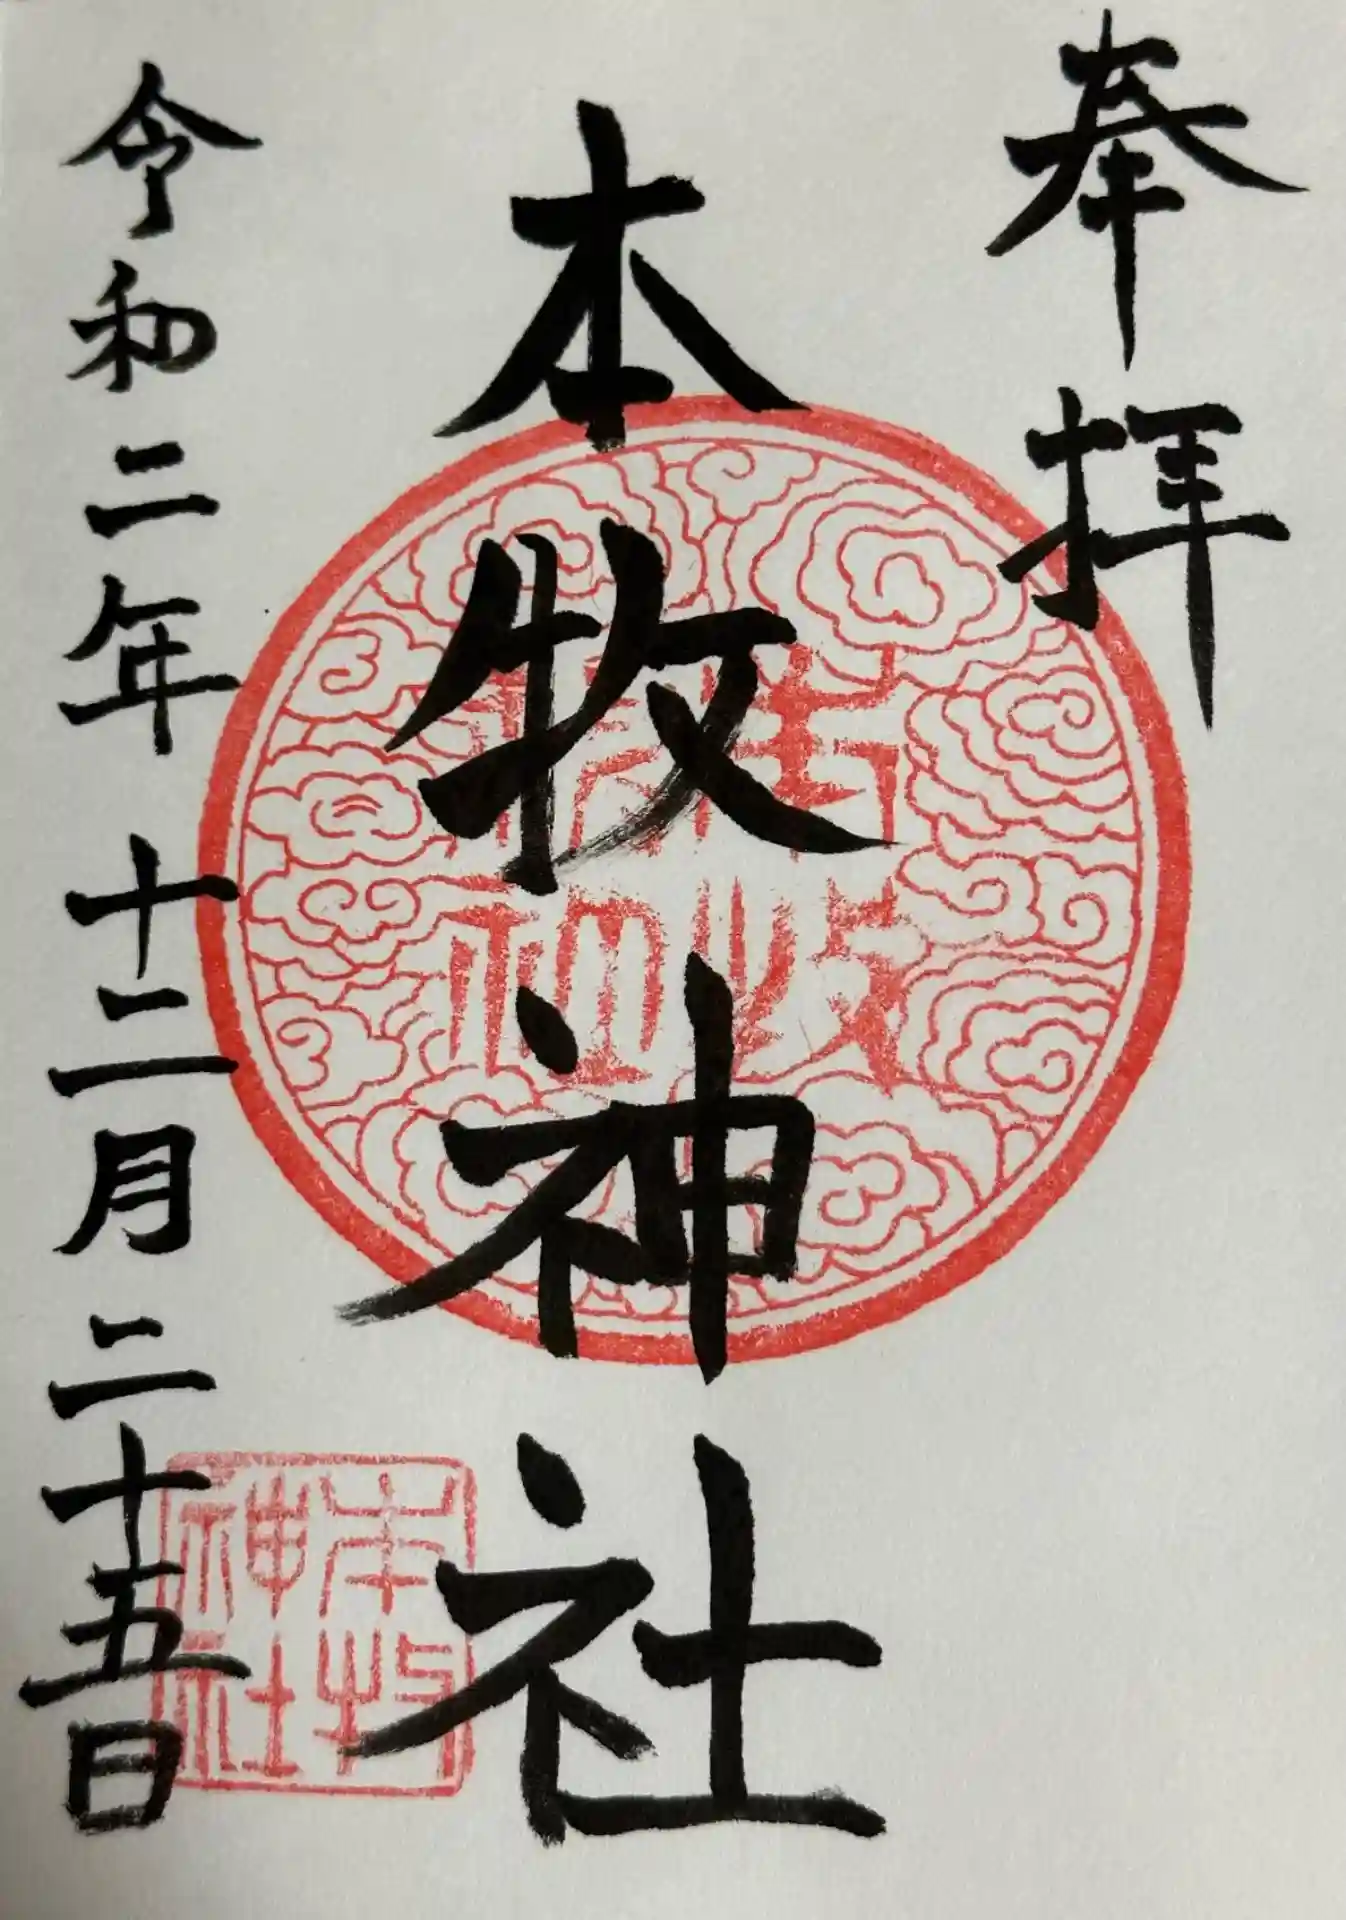 奉拝
本牧神社
令和二年十二月二十五日
本牧神社